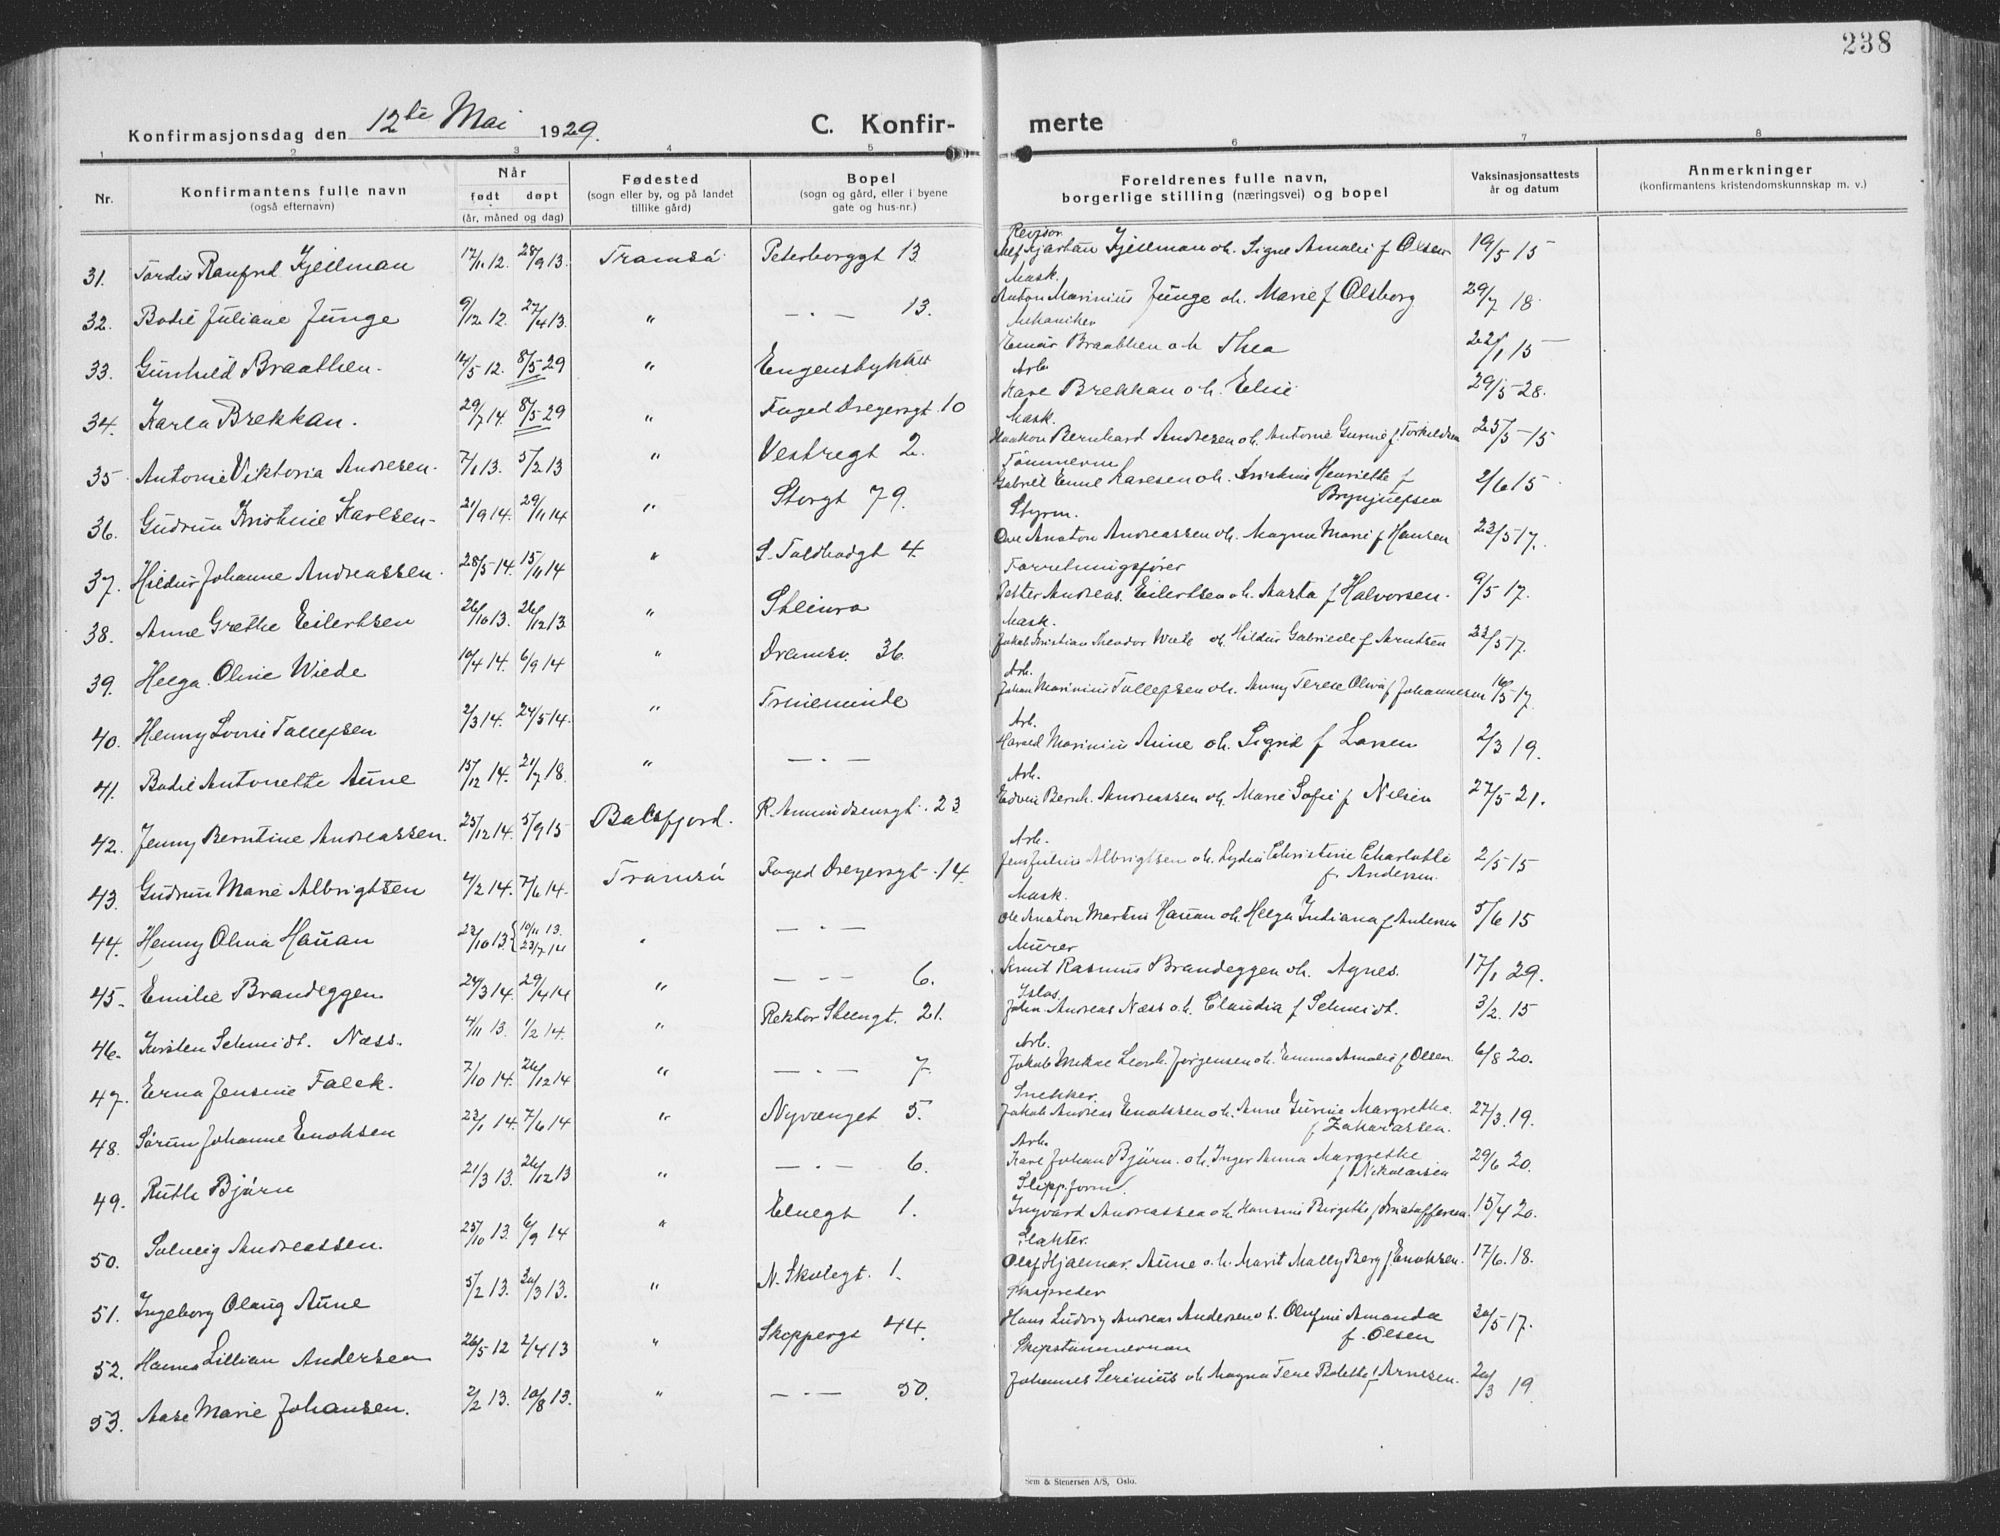 238
Konfirmasjonsdag den 12te Mai 1929.
C. Konfir- merte
1 2 3 4 5 6 7 8
Nr.
Konfirmantens fulle navn
(også efternavn)
Når
født døpt
(år, måned og dag)
Fødested
(sogn eller by, og på landet
tillike gård)
Bopel
(sogn og gård, eller i byene
gate og hus-nr.)
Foreldrenes fulle navn,
borgerlige stilling (næringsvei) og bopel
Vaksinasjonsattests
år og datum
Anmerkninger
(konfirmantens kristendomskunnskap m. v.)
Revisor
31. Tordis Ranfrid Kjellman 17/11 12. 28/9 13. Tromsø Peterborggt 13 Alf Kjartan Kjellman oh. Signe Amalie f Olsen 19/5 15
Mask.
32. Bodil Juliane Junge 9/12 12. 27/4 13. " — . — 13. Anton Marinius Junge oh. Marie f Olsborg 29/7 18.
Mekaniker
33. Gunhild Braathen. 14/5 12. 8/5 29 " Einar Braathen o h Thea 22/1 15
Arb.
34. Karla Brekkan. 29/7 14. 8/5 29 " Foged Dreyersgt. 10 Kare Brekkan o h. Elise 29/5 28.
Mask.
35 Antonie Viktoria Andresen. 7/1 13. 5/2 13 " Vestregt 2. Haakon Bernhard Andresen oh. Antonie Gurine f. Torkildsen 25/5 15
Tømmerm
36. Gudrun Kristine Karlsen 21/9 14. 29/11 14 " Storgt 79. Gabriel Emil Karlsen oh. Kristine Henriette f Brynjulfsen 2/6 15
Styrm.
37. Hildur Johanne Andreassen. 28/5 14. 15/11 14 " S. Toldbodgt 4. Ole Anaton Andreassen oh. Magna Marie f Hansen 23/5 17.
Forretningsfører
38. Anne Grethe Eilertsen 26/10 13. 26/12 13 " Steinra Petter Andreas Eilertsen oh. Aasta f Halvorsen. 9/5 17.
Mask.
39. Helga Oline Wiede 10/4 14. 6/9 14 " Dramsv. 36. Jakob Kristian Theodor Wiede oh Hildur Gabriele f Arntsen 23/5 17.
Arb.
40. Henny Lovise Tollefsen 2/3 14. 24/5 14. " Trudeminde Johan Marinius Tollefsen oh. Anny Terese Oliva f Johannesen 16/5 17.
Arb.
41. Bodil Antonette Aune 15/12 14. 21/7 18. " — . — Harald Marinius Aune oh. Sigrid f Larsen 2/3 19.
Arb.
42. Jenny Berntine Andreassen. 25/12 14. 5/9 15 Balsfjord. R. Amundsensgt. 23 Edvin Bernh. Andreassen oh. Marie Sofie f Nilsen 27/5 21.
Arb.
43. Gudrun Marie Albrigtsen 4/2 14. 7/6 14. Tromsø Foged Dreyersgt. 14. Jens Julius Albrigtsen oh. Lydia Christine Charlotte f. Andersen. 2/5 15
Mask.
44. Henny Olina Hauan 23/10 13 { 10/11 13. 23/7 14 " — . — Ole Anaton Martin Hauan oh. Helga Indiana f Andersen 5/6 15
Murer
45. Emilie Brandeggen 24/3 14. 29/4 14 " — . — 6. Knut Rasmus Brandeggen oh. Agnes. 17/1 29.
46. Kirsten Schmidt. Næss. 4/11 13. 1/2 14. " Rektor Steengt. 21. John Andreas Næss o.h. Claudia f Schmidt. 3/2. 15
Arb.
47. Erna Jensine Falck. 7/10 14. 26/12 14 " — . — 7. Jakob Mikal Leonh. Jørgensen oh. Emma Amalie f Olsen 6/8 20.
Snekker.
48. Sørun Johanne Enoksen 23/1 14. 7/6 14 " Nyvænget 5. Jakob Andreas Enoksen oh. Anne Gurine Margrethe f Zakariassen. 27/3. 19.
Arb.
49. Ruth Bjørn 21/3 13. 26/12 13 " — . — 6. Karl Johan Bjørn. oh. Inger Anna Margrethe f Nikolaisen 29/6 20.
Slippform.
50. Solveig Andreassen. 25/10 13. 6/9 14 " Elvegt 1. Ingvard Andreassen oh. Hansine Birgitte f Kristoffersen. 15/4 20.
Slakter.
51. Ingeborg Olaug Aune 5/2 13. 30/3 13. " N. Skolegt. 1. Olaf Hjalmar. Aune o.h. Marit Mally Berg f Enoksen. 17/6. 18.
Skipsreder
52. Hanna Lillian Andersen 26/5 12 2/4 13 " Skippergt 44. Hans Ludvig Andreas Andersen o h. Olufine Amanda f. Olsen 30/5 17.
Skipstømmerman
53. Aase Marie Johansen. 2/2 13. 10/8 13. " — . — 50. Johannes Serinius oh Magna Tene Bolette f Arnesen. 20/3 19.
Sem & Stenersen A/S, Oslo.